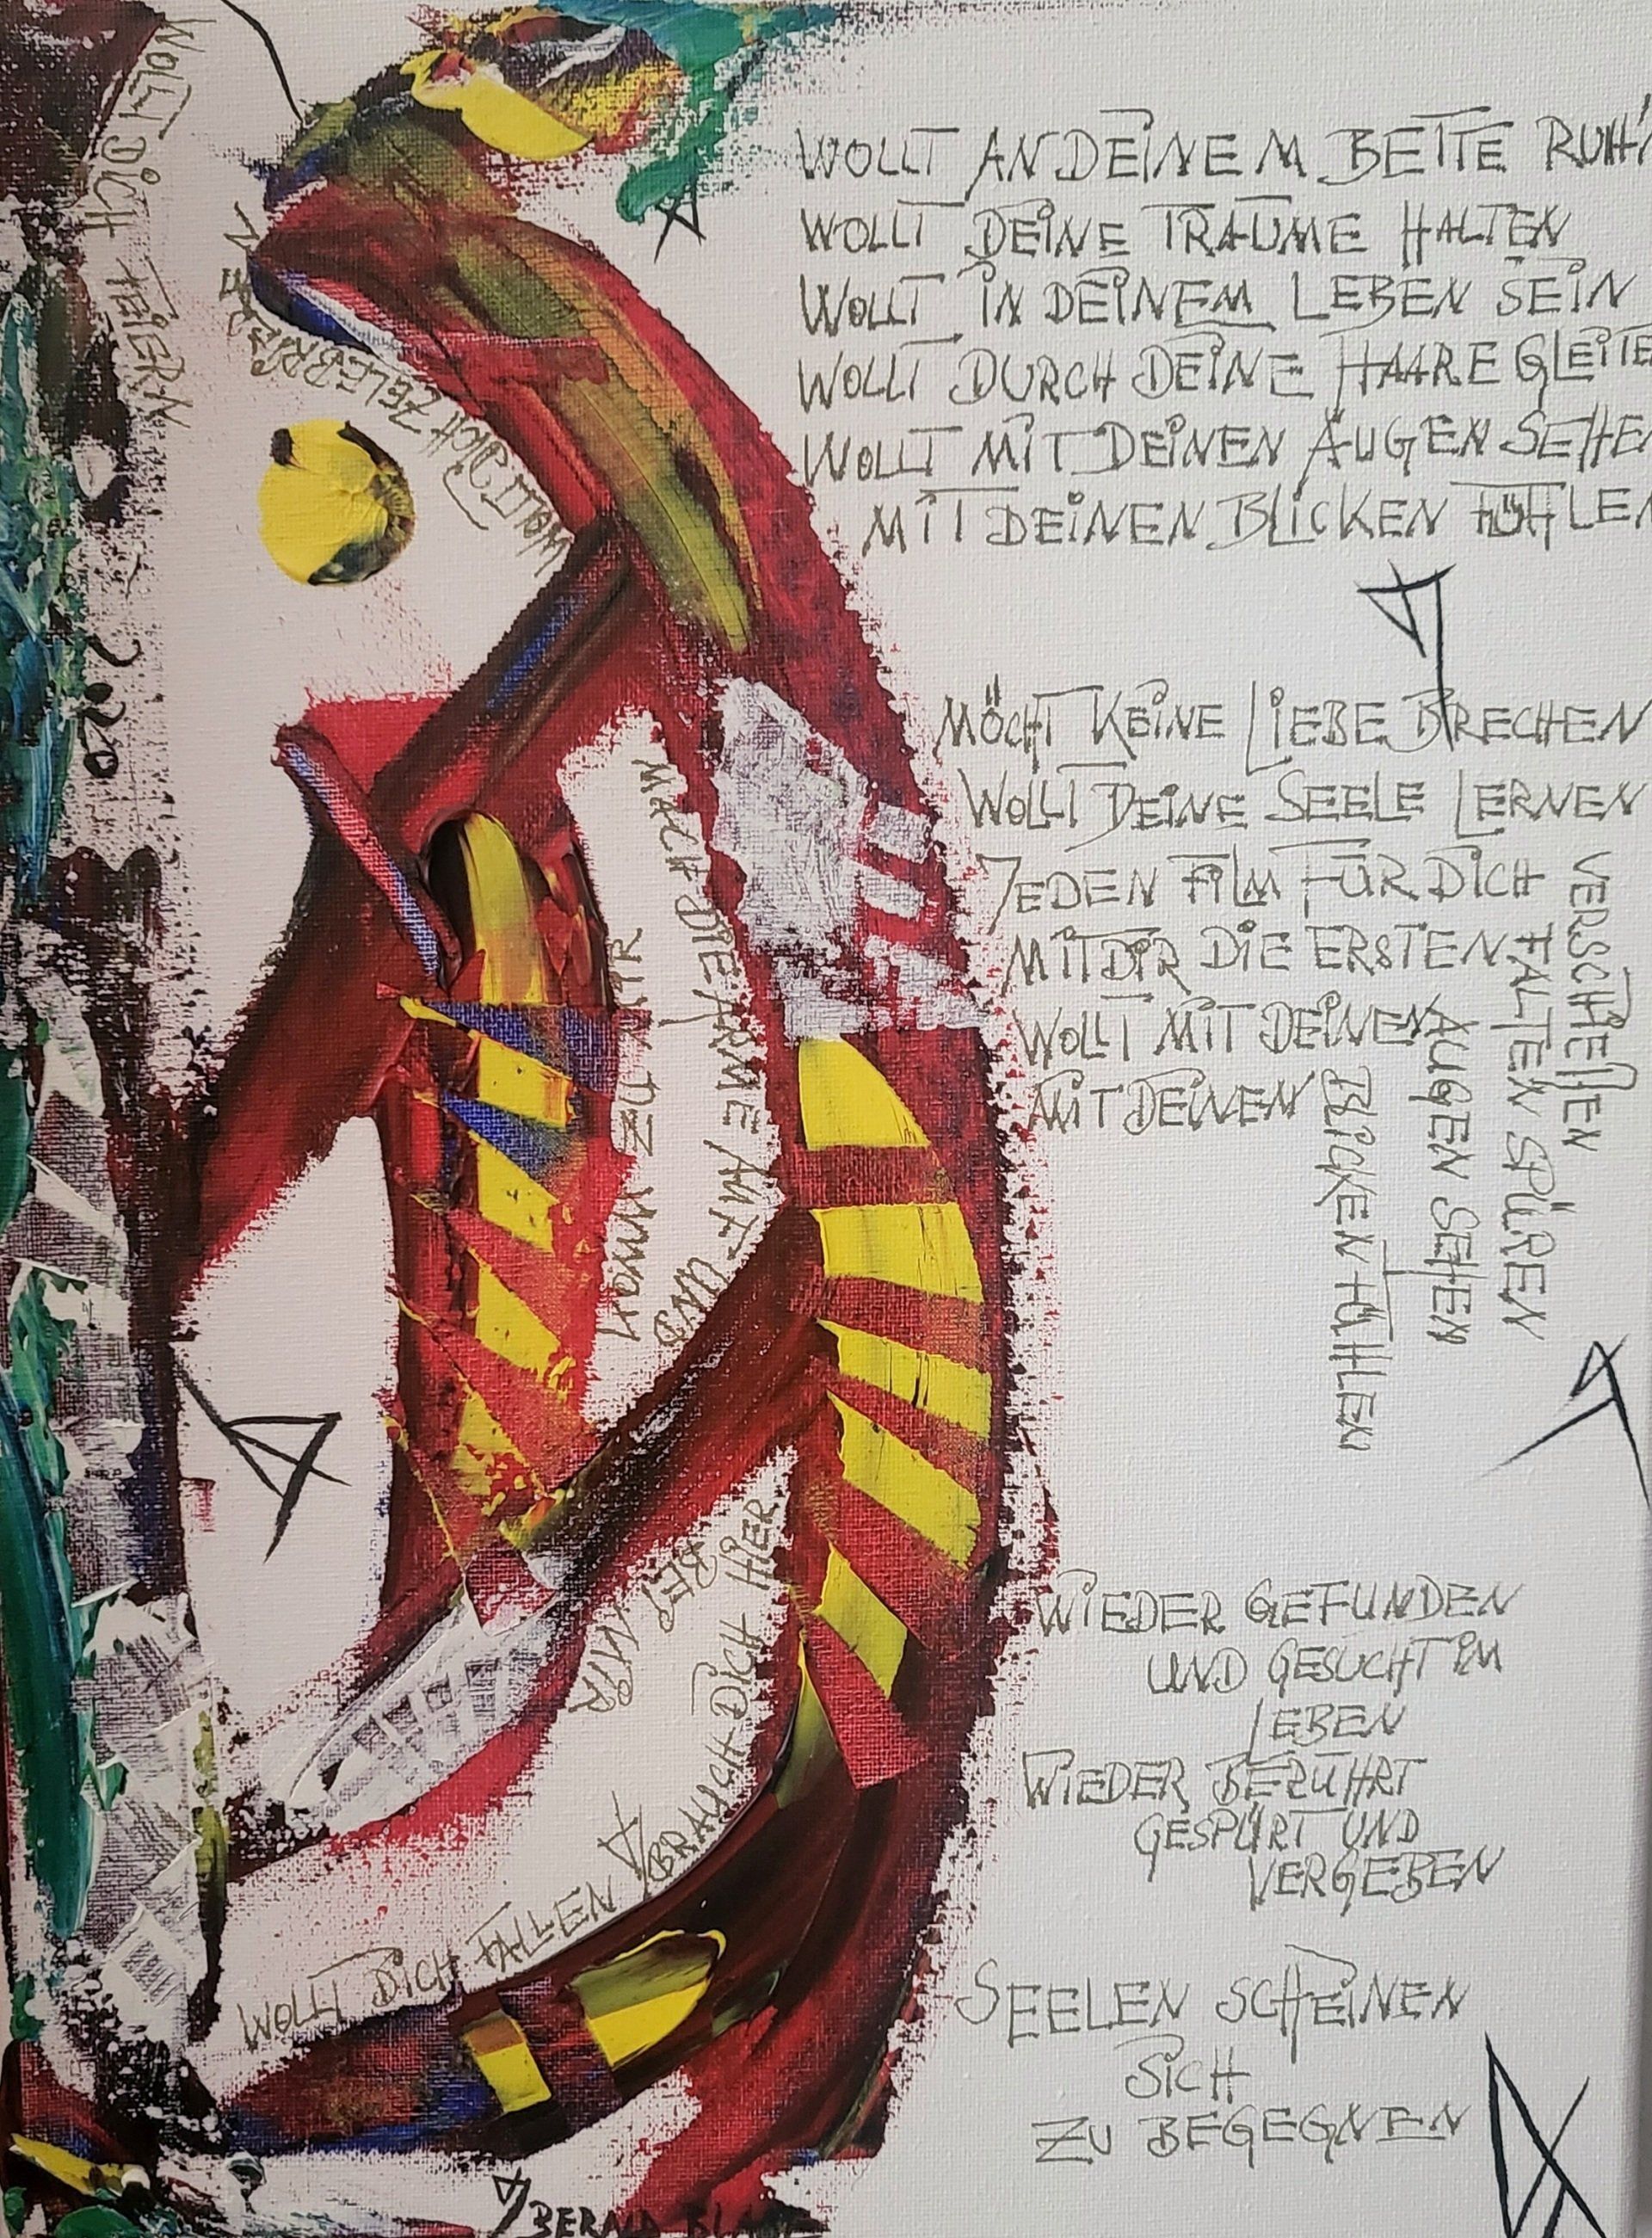 WOLLT AN DEINEM BETTE RUH'
WOLLT DEINE TRÄUME HALTEN
WOLLT IN DEINEM LEBEN SEIN
WOLLT DURCH DEINE HAARE GLEITE
WOLLT MIT DEINEN AUGEN SEHE
MIT DEINEN BLICKEN FÜHLE
MÖCHT KEINE LIEBE BRECHEN
WOLLT DEINE SEELE LERNEN
JEDEN FILM FÜR DICH VERSCHIEßEN
MIT DIR DIE ERSTEN FALTEN SPÜREN
WOLLT MIT DEINEN AUGEN SEHEN
MIT DEINEN BLICKEN FÜHLEN
WIEDER GEFUNDEN
UND GESUCHT IM
LEBEN
WIEDER BERÜHRT
GESPÜRT UND
VERGEBEN
SEELEN SCHEINEN
SICH
ZU BEGEGNEN
WOLLT DICH FEIERN
WOLLT DICH ZELEBRIEREN
MACH DIE ARME AUF UND
KOMM ZU MIR
WOLLT DICH FALLEN
BRAUCH DICH HIER
BEI MIR
2020
BERND